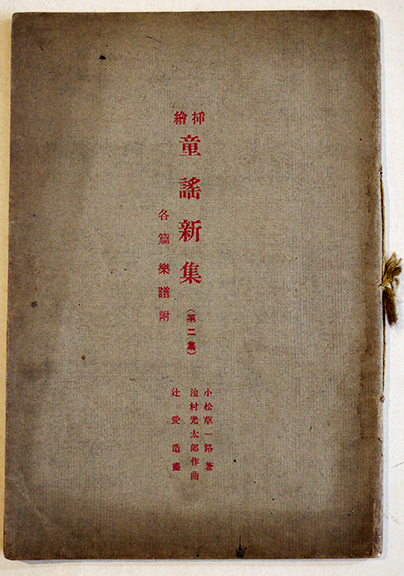 挿繪
童謠新集
各篇樂譜附
(第二集)
小松草一路著
池村光太郎作曲
辻愛造畵